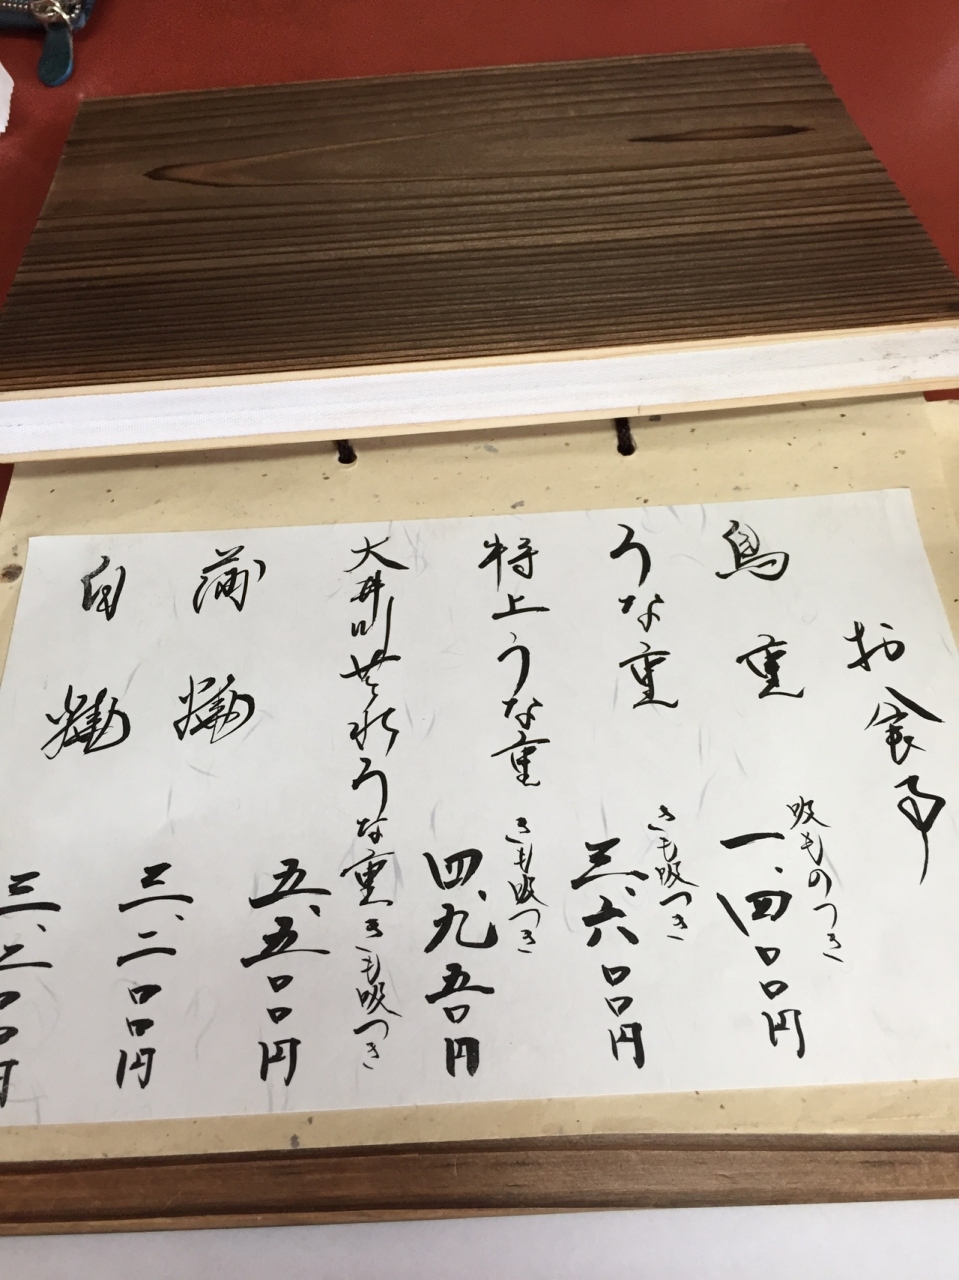 お食事
鳥重 吸ものつき 一、四〇〇円
うな重 きも吸つき 三、六〇〇円
特上うな重 きも吸つき 四、九五〇円
大井川共水うな重 きも吸つき 五、五〇〇円
蒲焼 三、二〇〇円
白焼 三、二〇〇円